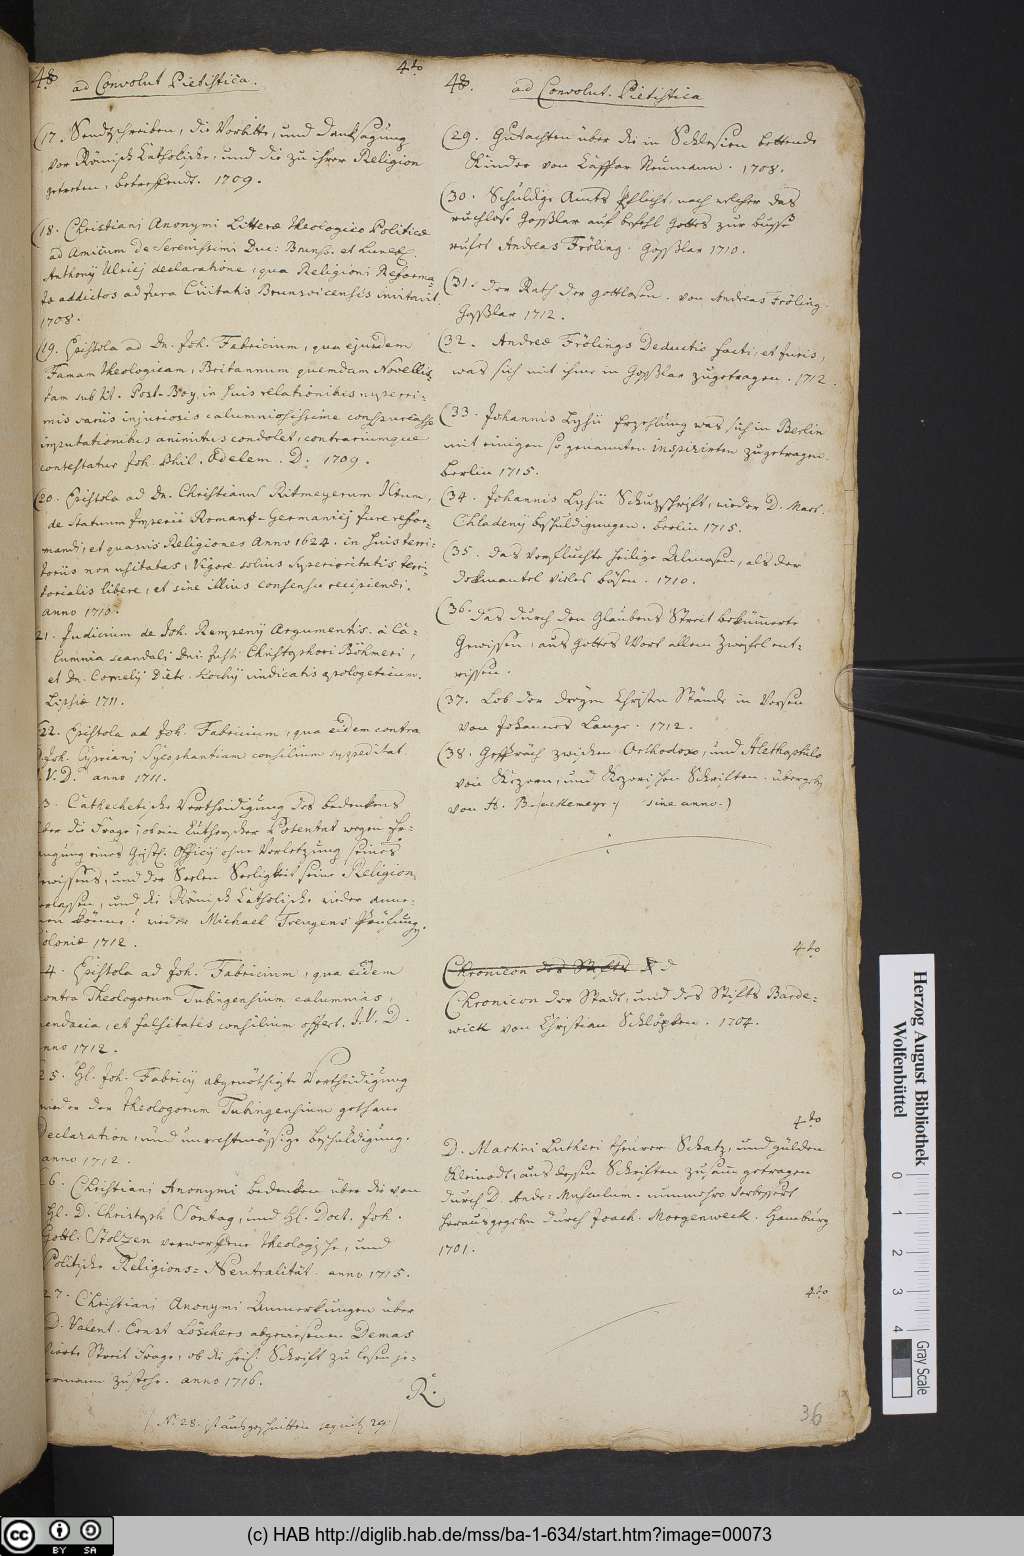 48
4to
ad Convolut Pietistica.
(17. Sendschreiben, die Vorbitte, und Danksagung
vor Römisch Catholische, und die zu ihrer Religion
getreten, betreffendt. 1709.
(18. Christiani Anonymi Litteræ Theologico Politicæ
ad Amicum de Serenissimi Duc: Brunsv. et Luneb.
Anthonij Ulrici declaratione, qua Religioni Reforma-
tæ addictos ad jura Civitatis Brunsvicensis invitavit
1708.
(19. Epistola ad Dn. Joh. Fabricium, qua ejusdem
Famam Theologicam, Britannum quemdam Novellis-
tam sub tit. Post-Boy, in suis relationibus nuperri-
mis variis injuriosis calumniosissime
imputationibus animitus condolet, contrariumque
contestatur Joh. Phil. Odelem. D. 1709.
(20. Epistola ad Dn. Christianum Ritmeyerum ICtum,
de statuum Imperii Romano-Germanici Jure refor-
mandi, et quasvis Religiones Anno 1624. in suis terri-
toriis non usitatas, Vigore solius Superioritatis terri-
torialis libere, et sine illius consensu recipiendi.
Anno 1710.
21. Judicium de Joh. Argumentis. à Ca-
lumnia scandali Dni. Justi Christophori Böhmeri,
et Dn. Cornelij Dietr. Kochij vindicatis apologeticum.
Lipsiæ 1711.
22. Epistola ad Joh. Fabricium, qua eidem contra
Joh. Cypriani Sycophantiam consilium suppeditat
I. V. D. anno 1711.
3. Catechetische Vertheidigung des Bedenkens
über die Frage; ob ein Lutherischer Potentat wegen Er-
langung eines Geistl. Officij ohne Verletzung seines
Gewissens, und der Seelen Seeligkeit seine Religion
verlassen, und die Römisch Catholische wieder anne-
men könne? wieder Michael Trengens Prüfung.
Coloniæ 1712.
4. Epistola ad Joh. Fabricium, qua eidem
contra Theologorum Tubingensium calumnias,
mendacia, et falsitates consilium offert. I. V. D.
anno 1712.
25. Hl. Joh. Fabricij abgenöthigte Vertheidigung
wieder der Theologorum Tubingensium gethane
Declaration, und unrechtmässige beschuldigung.
anno 1712.
6. Christiani Anonymi bedenken über die von
Hl. D. Christoph Sontag, und Hl. Doct. Joh.
Gottl. Stoltzen verworffene Theologische, und
Politische Religions-Neutralität. anno 1715.
27. Christiani Anonymi Anmerkungen über
D. Valent. Ernst Löschers abgewiesenen Demas
Streit Frage, ob die heil. Schrift zu lesen je-
dermann zustehe. anno 1716.
R.
(No 28. ist ausgeschnitten sequitur 29.)
48.
ad Convolut. Pietistica
(29. Gutachten über die in Schlesien bettende
Kinder von Caspar Neumann. 1708.
(30. Schuldige Amts Pflicht, nach welcher das
ruchlose Gosslar auf befehl Gottes zur busse
rufet Andreas Fröling. Gosslar 1710.
(31. der Rath der gottlosen. von Andreas Fröling.
Gosslar 1712.
(32. Andreæ Frölings Deductio facti, et juris,
was sich mit ihme in Gosslar zugetragen. 1712.
(33. Johannis Lysii Erzehlung was sich in Berlin
mit einigen so genannten inspirirten zugetragen.
Berlin 1715.
(34. Johannis Lysii Schutzschrift, wieder D. Mart.
Chladenij beschuldigungen. Berlin 1715.
(35. das verfluchte heilige Almosen, als der
dekmantel vieles bösen. 1710.
(36. das durch den Glaubens Streit bekümmerte
Gewissen, aus Gottes Wort allem Zweiffel ent-
rissen.
(37. Lob der dreyen Christen Stände in Versen
von Johannes Lange. 1712.
(38. Gespräch zwischen Orthodoxo, und Alethophilo
von Ketzern, und Ketzerischen Schriften.
von H. B. sine anno.)
4to
Chronicon des Stifts
Chronicon der Stadt, und des Stifts Barde-
wick von Christian Schlöpken. 1704.
4to
D. Martini Lutheri theurer Schatz, und gülden
Kleinodt, aus dessen Schriften zusam getragen
durch D. Andr: Musculum. nunmehro verbessert
herausgegeben durch Joach. Morgenweck. Hamburg
1701.
4to
36
Herzog August Bibliothek
Wolfenbüttel
0 1 2 3 4
Gray Scale
CC BY SA
(c) HAB http://diglib.hab.de/mss/ba-1-634/start.htm?image=00073